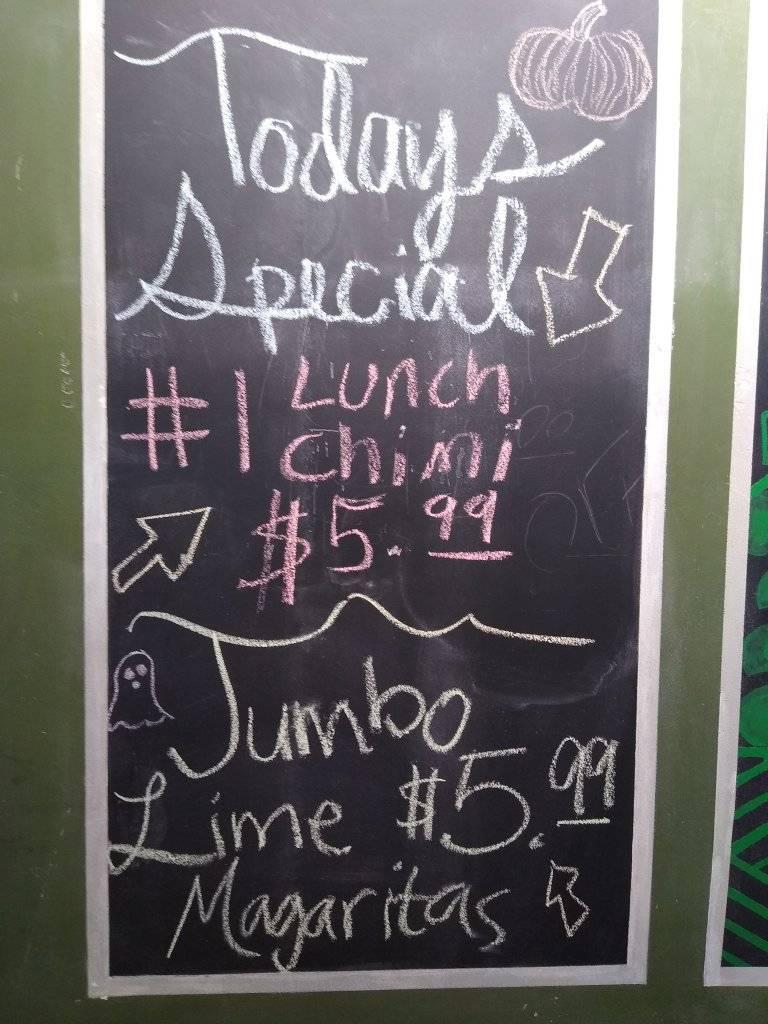 Todays
Special
#1 Lunch
Chimi
$5.99
Jumbo
Lime $5.99
Magaritas